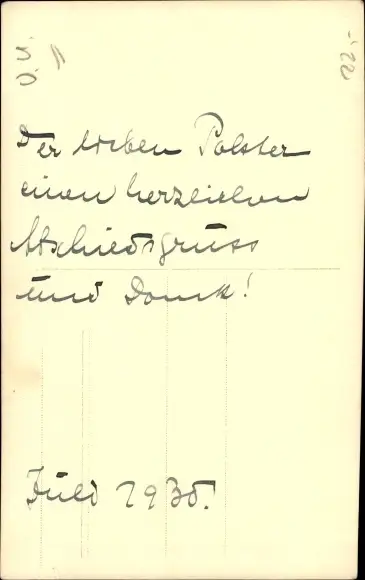 Der lieben Polster
einen herzlichen
Abschiedsgruss
und Dank!
Juli 1930.